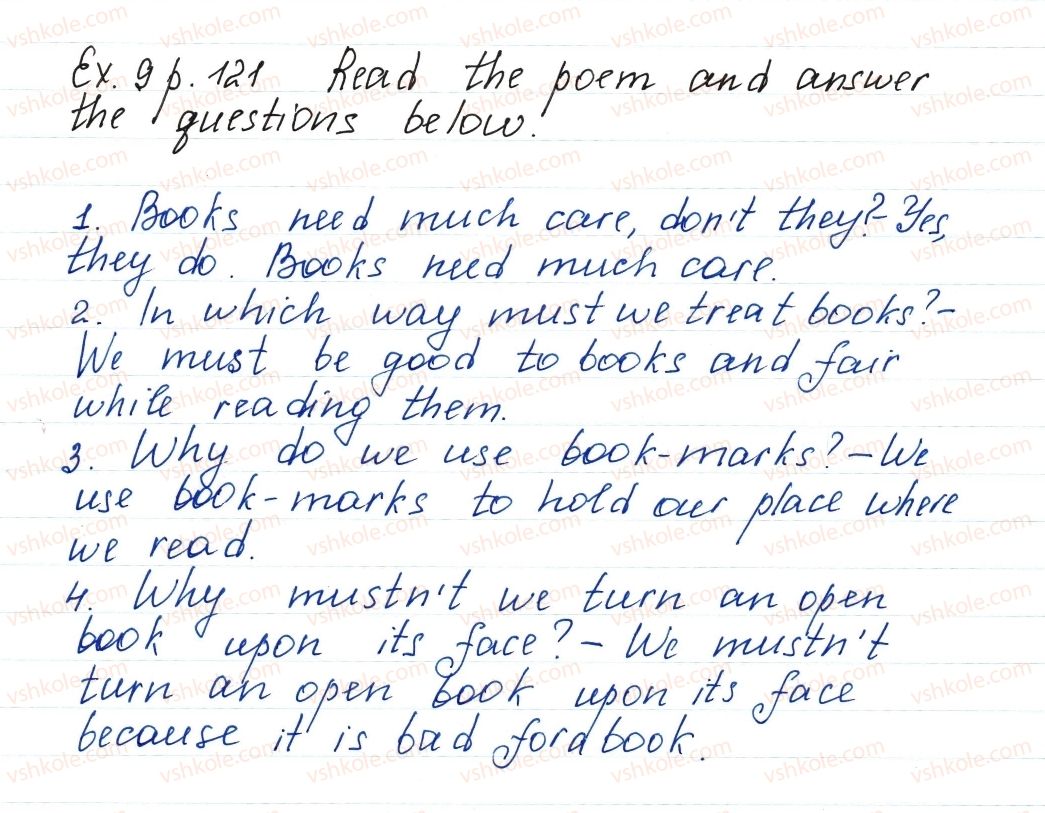 Ex. 9 p. 121 Read the poem and answer
the questions below.
1. Books need much care, don't they? - Yes,
they do. Books need much care.
2. In which way must we treat books? -
We must be good to books and fair
while reading them.
3. Why do we use book-marks? - We
use book-marks to hold our place where
we read.
4. Why mustn't we turn an open
book upon its face? - We mustn't
turn an open book upon its face
because it is bad for a book.